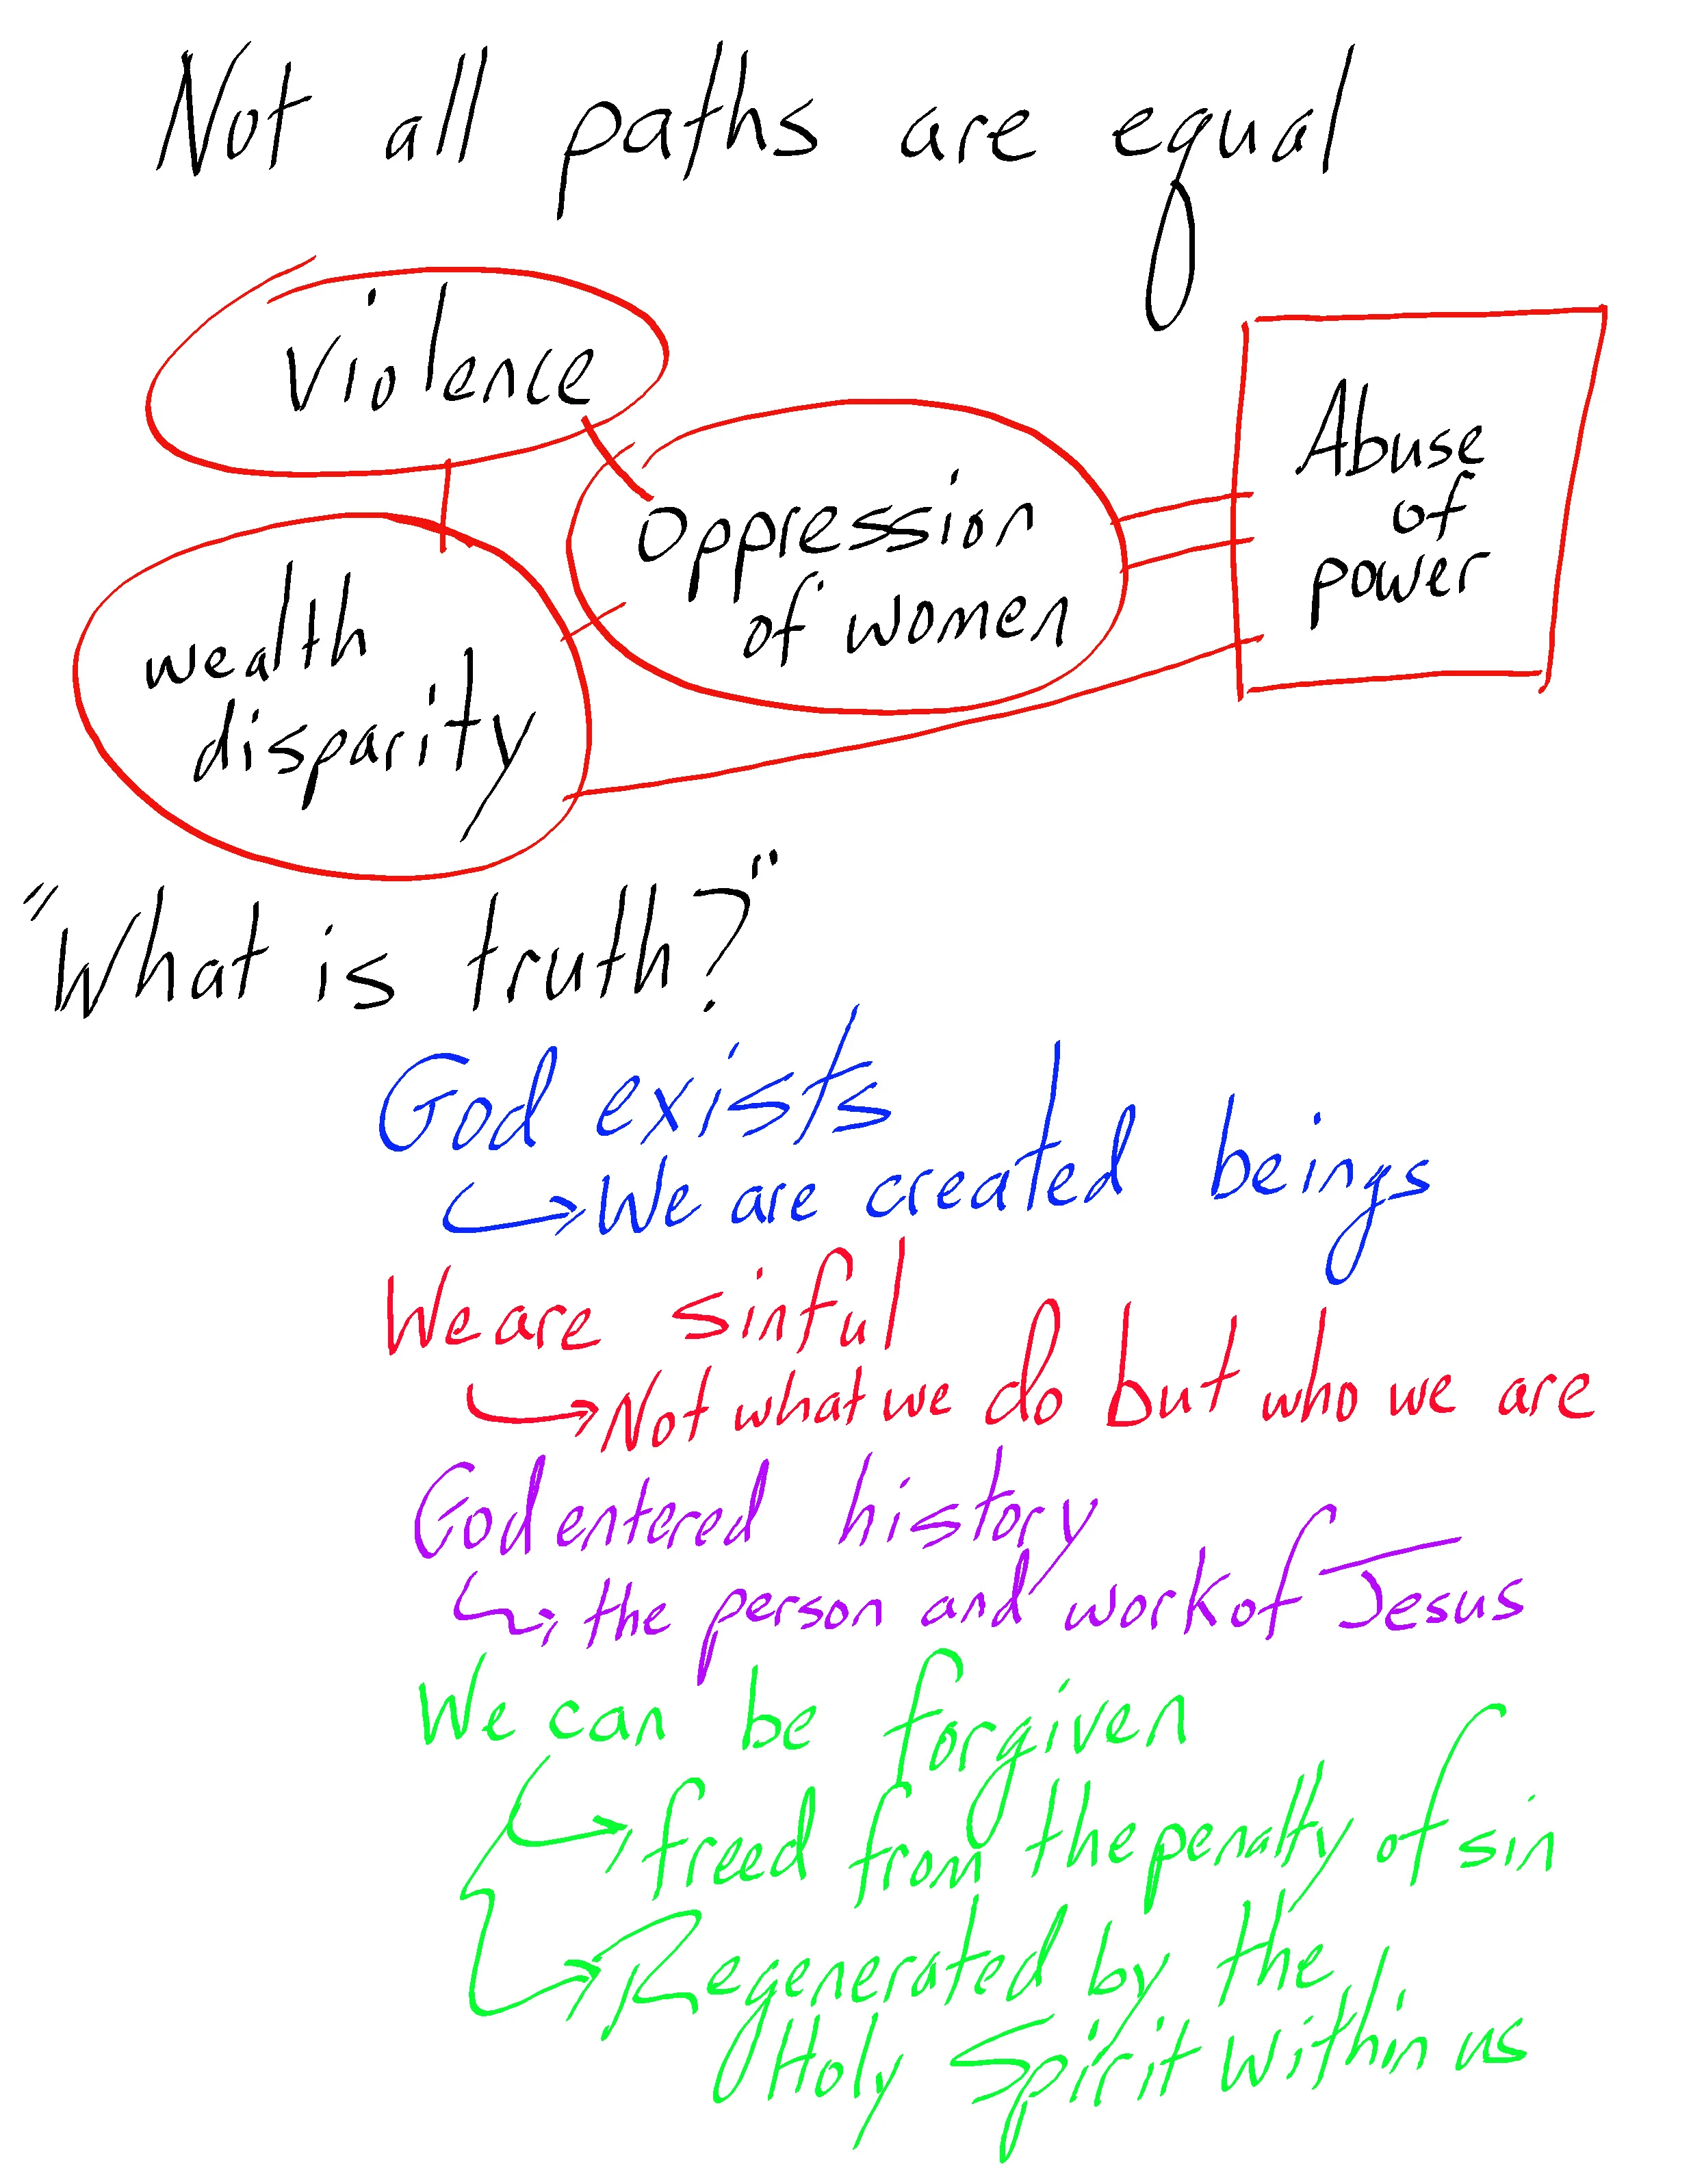 Not all paths are equal
Violence
Oppression
of women
Abuse
of
power
wealth
disparity
"What is truth?"
God exists
We are created beings
We are sinful
Not what we do but who we are
God entered history
the person and work of Jesus
We can be forgiven
freed from the penalty of sin
Regenerated by the
Holy Spirit within us